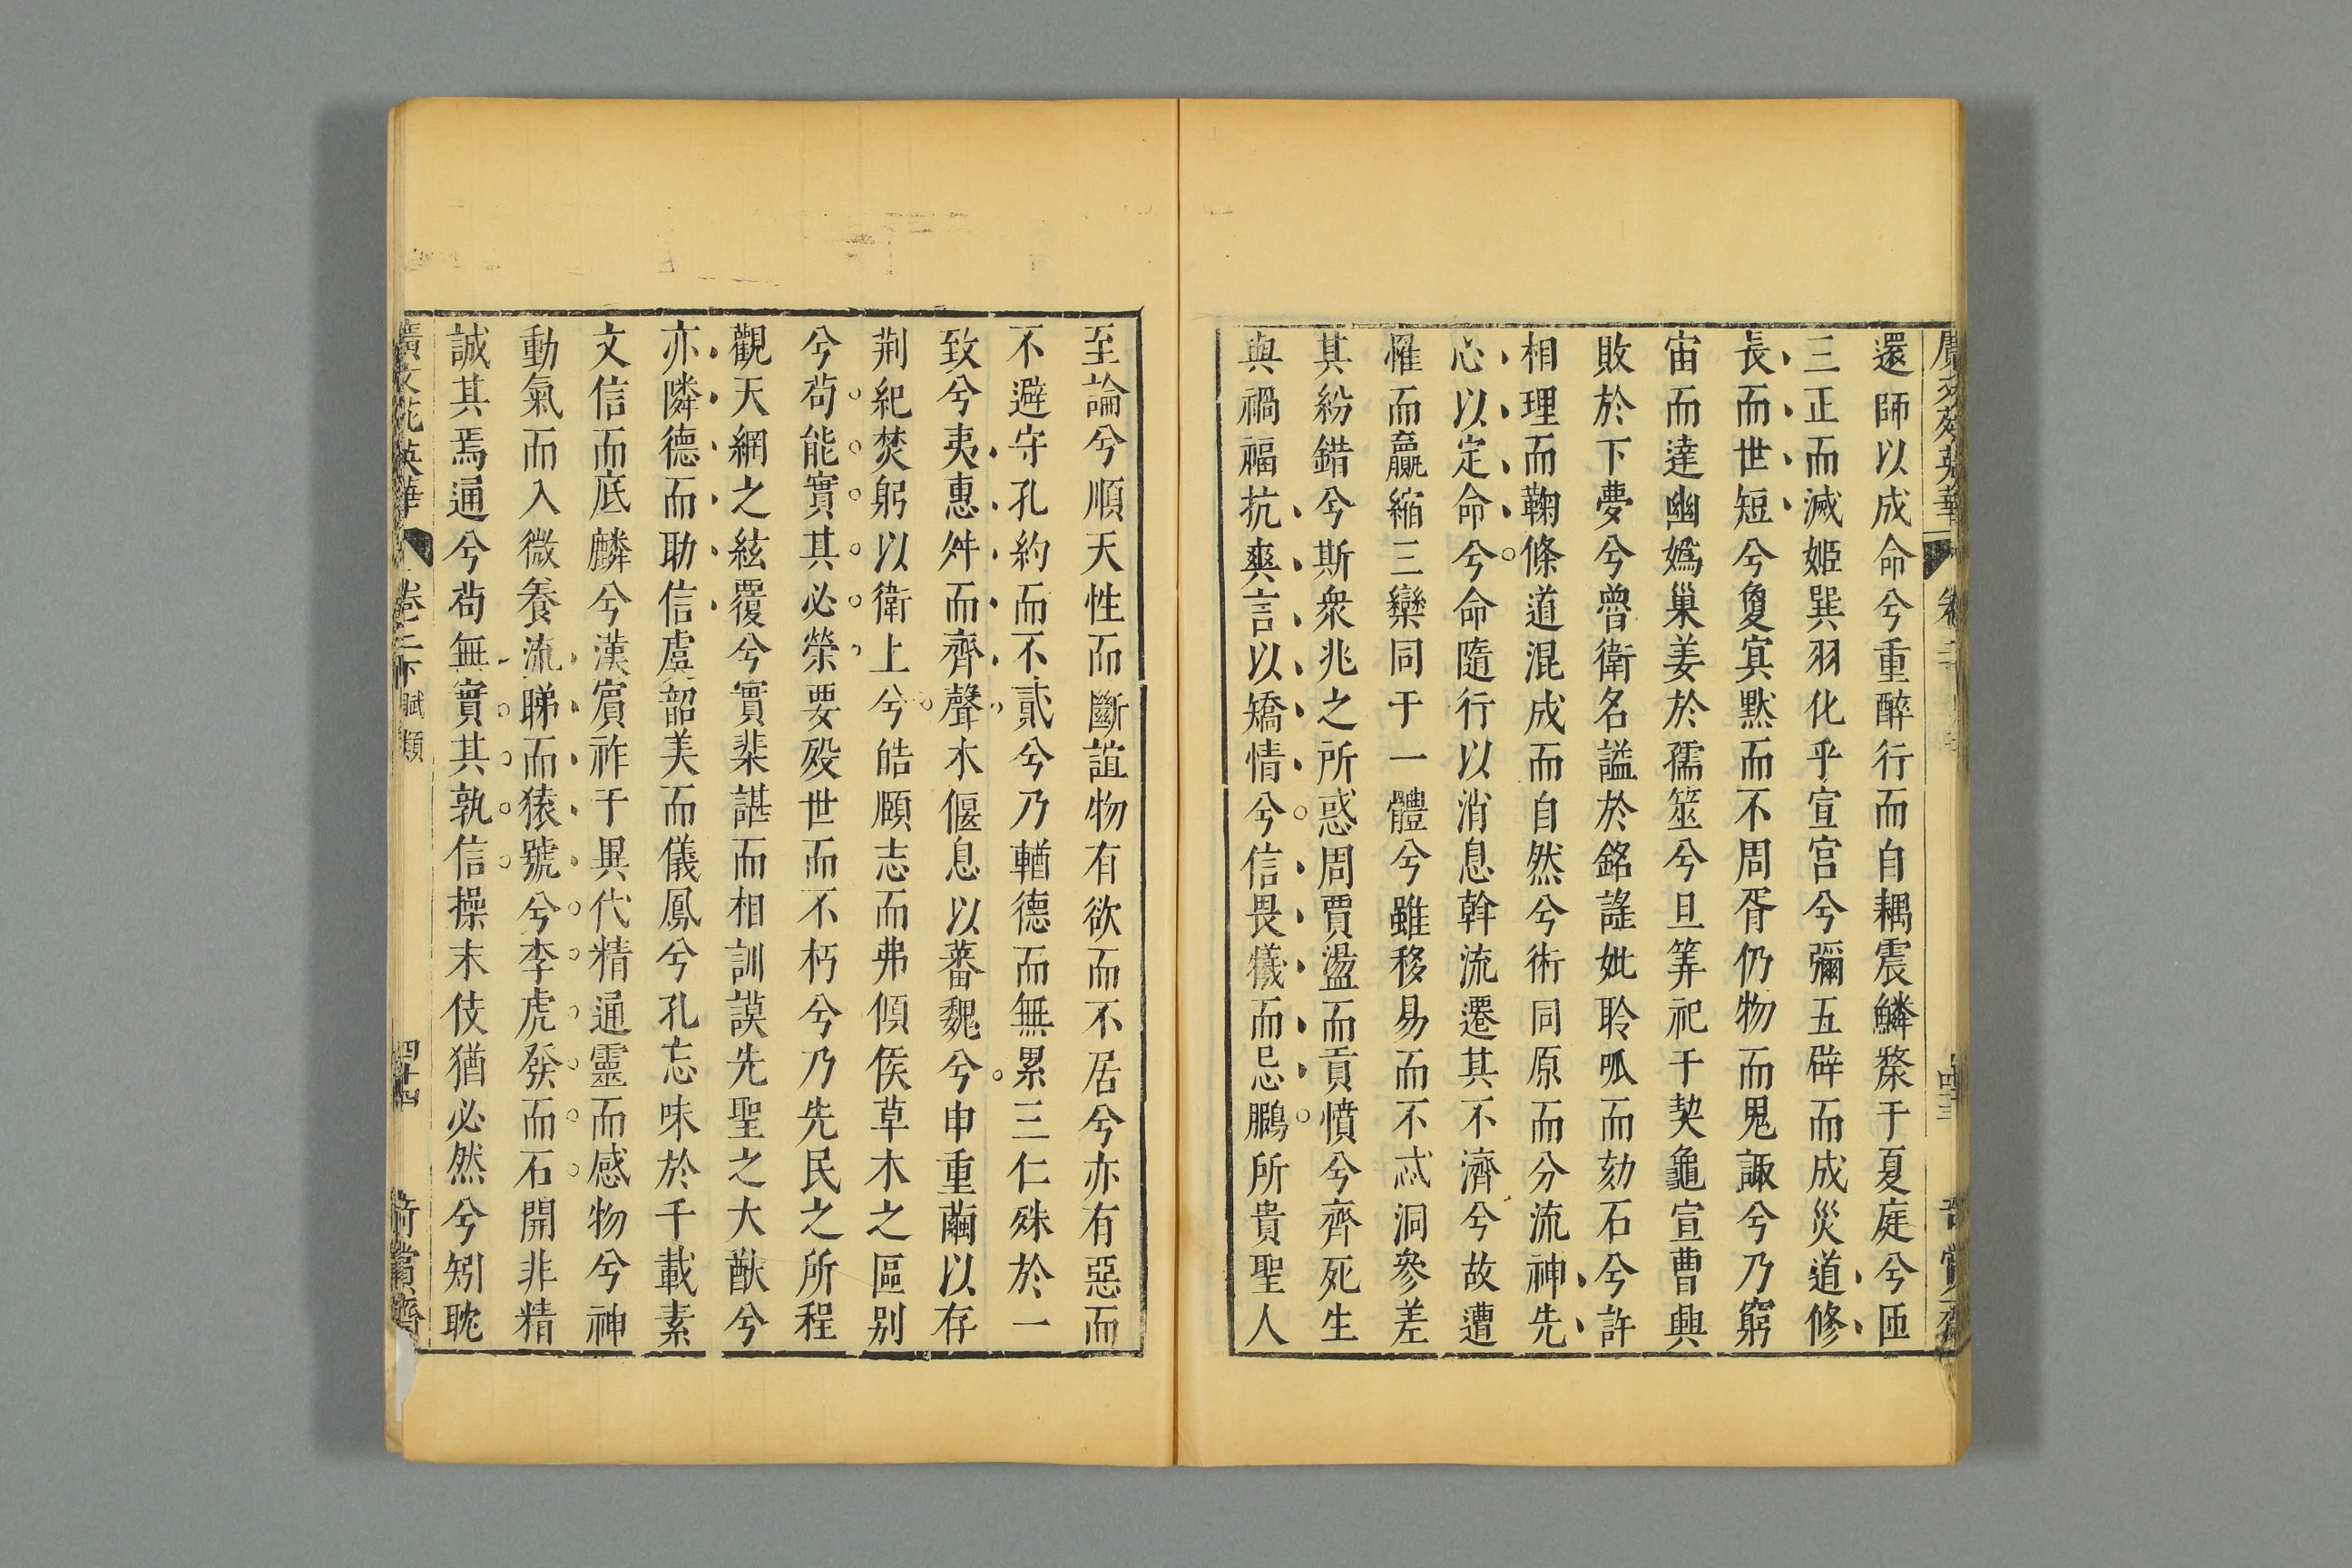 還師以成命兮重醉行而自耦震鱗漦于夏庭兮匝
三正而滅姬巽羽化乎宣宮兮彌五辟而成災道修
長而世短兮夐冥默而不周胥仍物而鬼諏兮乃窮
宙而達幽嬀巢姜於孺筮兮旦筭祀于契龜宣曹興
敗於下夢兮魯衛名謚於銘謠妣聆呱而劾石兮許
相理而鞠條道混成而自然兮術同原而分流神先
心以定命兮命隨行以消息斡流遷其不濟兮故遭
罹而贏縮三欒同于一體兮雖移易而不忒洞參差
其紛錯兮斯衆兆之所惑周賈盪而貢憤兮齊死生
與禍福抗爽言以矯情兮信畏犧而忌鵩所貴聖人
至論兮順天性而斷誼物有欲而不居兮亦有惡而
不避守孔約而不貳兮乃輶德而無累三仁殊於一
致兮夷惠舛而齊聲木偃息以蕃魏兮申重繭以存
荆紀焚躬以衛上兮皓頤志而弗傾侯草木之區别
兮苟能實其必榮要殁世而不朽兮乃先民之所程
觀天網之紘覆兮實棐諶而相訓謨先聖之大猷兮
亦隣德而助信虞韶美而儀鳳兮孔忘味於千載素
文信而底麟兮漢賔祚于異代精通靈而感物兮神
動氣而入微養流睇而猿號兮李虎發而石開非精
誠其焉通兮苟無實其孰信操末伎猶必然兮矧耽
廣文苑英華 卷二下 賦類 四十四 奇賞齋